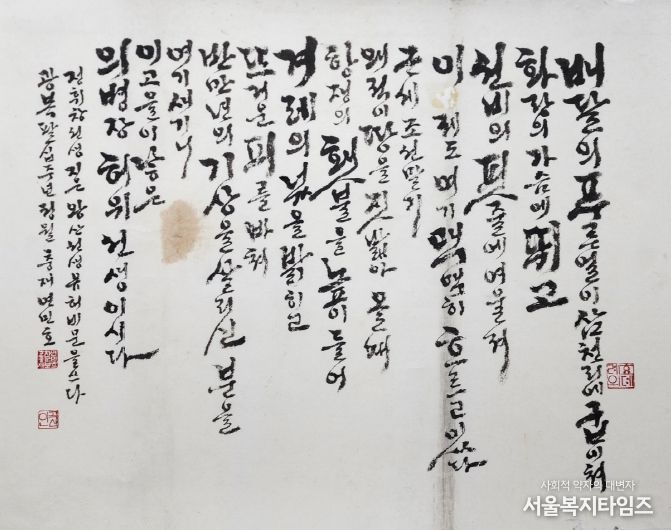 배달의 푸른얼이 삼천리에 굽이쳐
화랑의 가슴에 뛰고
선비의 핏줄에 어울려
이제도 여기 맥맥히 흐르고 있다
근세 조선말기
왜적이 땅을 짓밟아 올때
항쟁의 횃불을 높이 들어
겨레의 넋을 밝히고
뜨거운 피를 바쳐
반만년의 기상을 살리신 분을
여기 새기니
이고을이 낳은
의병장 허위 선생이시다
정휘창선생 짓은 왕산선생유허비문을쓰다
광복팔십주년정월 민호
사회적 약자의 대변자
서울복지타임즈